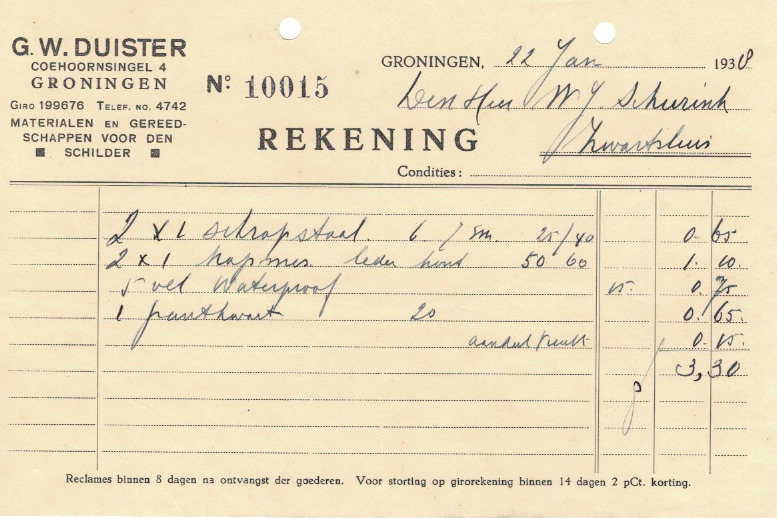 G. W. DUISTER
COEHOORNSINGEL 4
GRONINGEN
GIRO 199676 TELEF. NO. 4742
MATERIALEN EN GEREED-
SCHAPPEN VOOR DEN
SCHILDER
No 10015
GRONINGEN, 22 Jan 1938
Den Heer W J Schurink
Zwartsluis
REKENING
Condities:
2 x 1 schrapstaal 6 / sm. 25/40 0. 65
2 x 1 kapmes leder hout 50 60 1. 10
5 vel Waterproof 15. 0. 75
1 puntkwast 20 0. 65.
aandeel 0. 15.
3,30
Reclames binnen 8 dagen na ontvangst der goederen. Voor storting op girorekening binnen 14 dagen 2 pCt. korting.